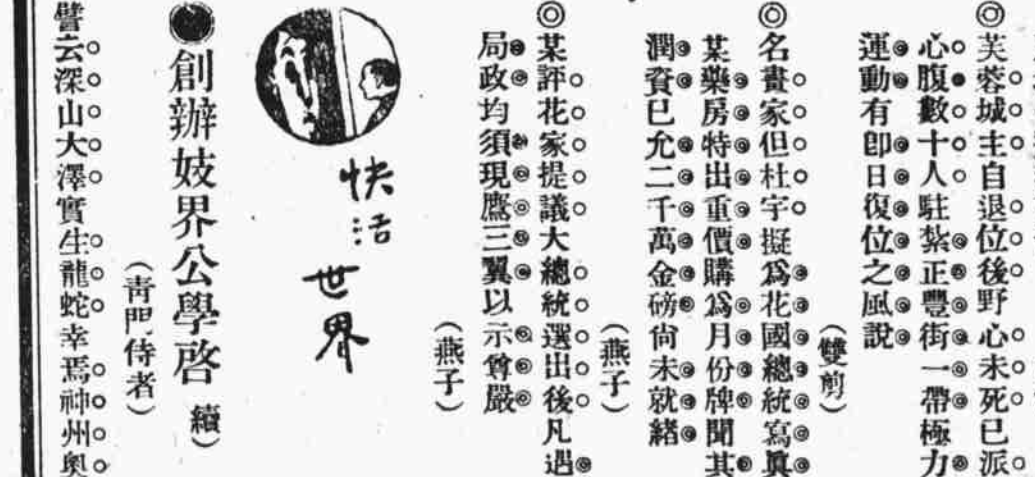 ◎芙蓉城主自退位後野心未死已派
心腹數十人駐紮正豐街一帶極力
運動有卽日復位之風說
(雙剪)
◎名畫家但杜宇擬爲花國總統寫眞
某藥房特出重價購爲月份牌聞其
潤資已允二千萬金磅尙未就緖
(燕子)
◎某評花家提議大總統選出後凡遇
局政均須現鷹三翼以示尊嚴
(燕子)
快活世界
●創辦妓界公學啓 續)
(靑門侍者)
譬云深山大澤實生龍蛇幸焉神州奧